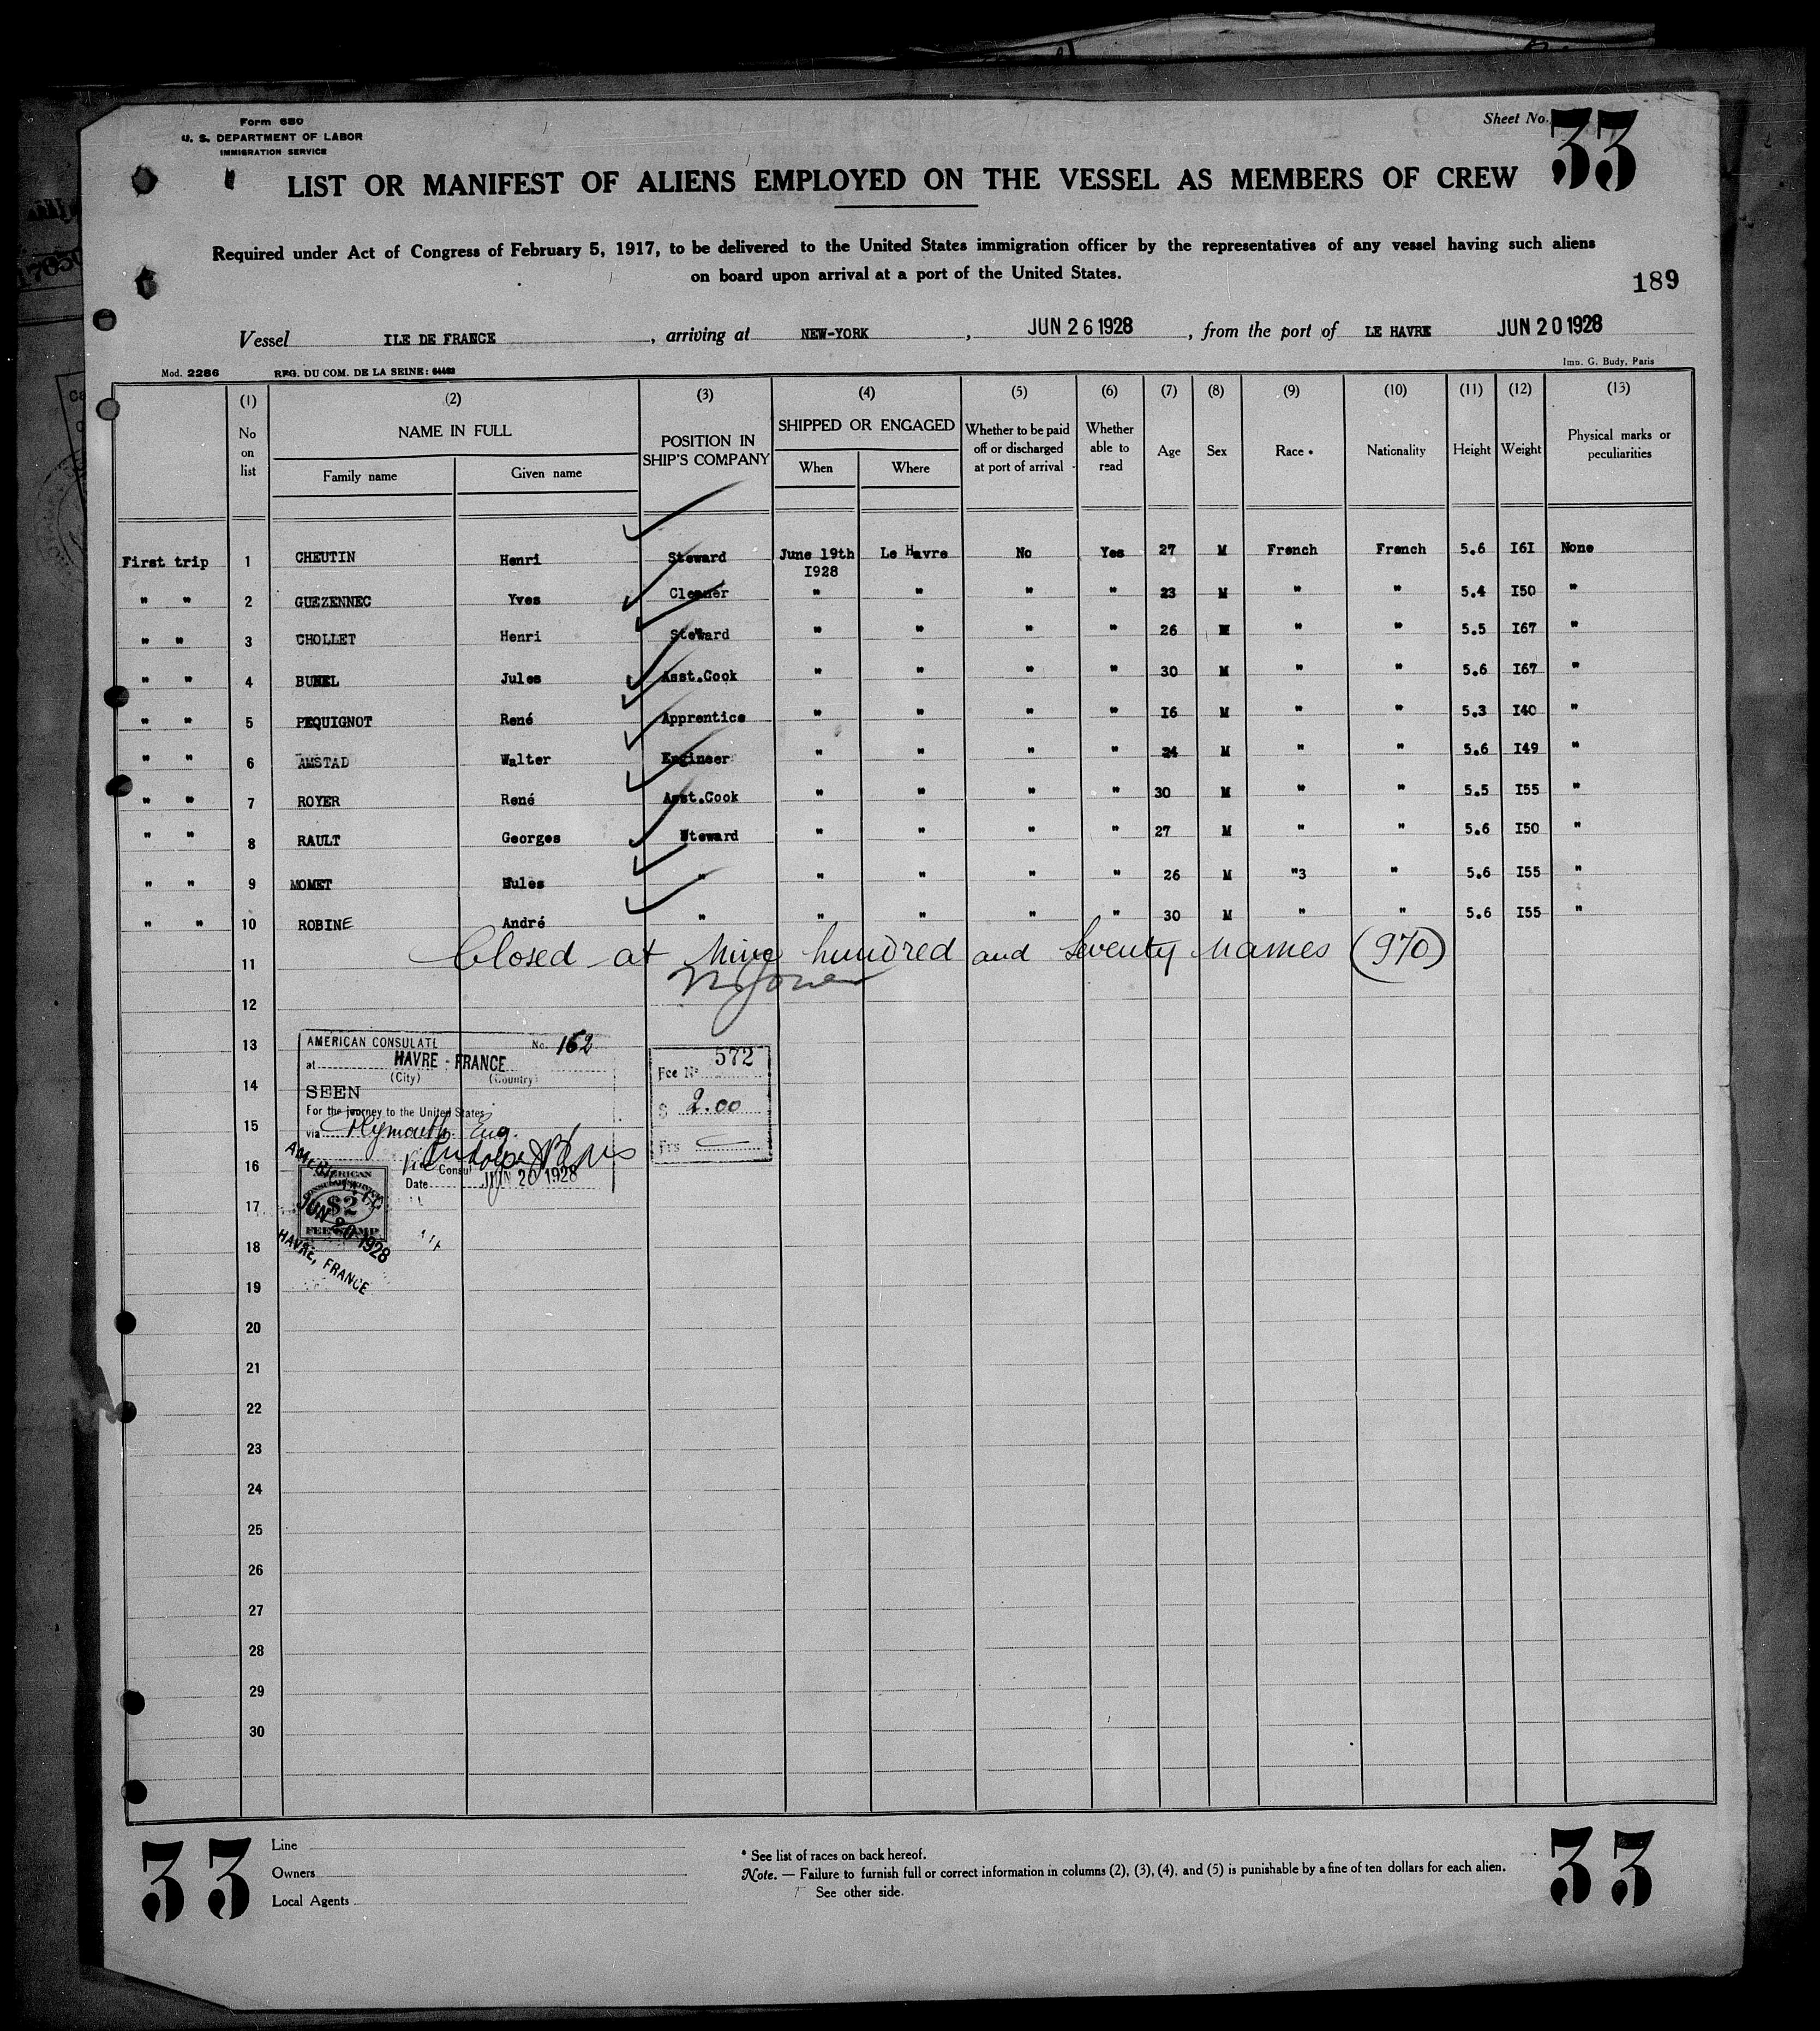 Form 680
U. S. DEPARTMENT OF LABOR
IMMIGRATION SERVICE
Sheet No. 33
LIST OR MANIFEST OF ALIENS EMPLOYED ON THE VESSEL AS MEMBERS OF CREW
Required under Act of Congress of February 5, 1917, to be delivered to the United States immigration officer by the representatives of any vessel having such aliens
on board upon arrival at a port of the United States.
189
Vessel ILE DE FRANCE, arriving at NEW-YORK, JUN 26 1928, from the port of LE HAVRE JUN 20 1928
Mod. 2286 REG. DU COM. DE LA SEINE: 64463 Imp. G. Budy, Paris
(1) (2) (3) (4) (5) (6) (7) (8) (9) (10) (11) (12) (13)
No on list NAME IN FULL POSITION IN SHIP'S COMPANY SHIPPED OR ENGAGED Whether to be paid off or discharged at port of arrival Whether able to read Age Sex Race * Nationality Height Weight Physical marks or peculiarities
Family name Given name When Where
First trip 1 CHEUTIN Henri Steward June 19th 1928 Le Havre No Yes 27 M French French 5.6 I6I None
" " 2 GUEZENNEC Yves Cleaner " " " " 23 M " " 5.4 I50 "
" " 3 CHOLLET Henri Steward " " " " 26 M " " 5.5 I67 "
" " 4 BUNEL Jules Asst.Cook " " " " 30 M " " 5.6 I67 "
" " 5 PEQUIGNOT René Apprentice " " " " I6 M " " 5.3 I40 "
" " 6 AMSTAD Walter Engineer " " " " 24 M " " 5.6 I49 "
" " 7 ROYER René Asst.Cook " " " " 30 M " " 5.5 I55 "
" " 8 RAULT Georges Steward " " " " 27 M " " 5.6 I50 "
" " 9 MOMET " " " " " 26 M "3 " 5.6 I55 "
" " 10 ROBINE André " " " " " 30 M " " 5.6 I55 "
Closed at Nine hundred and Seventy names (970)
11
12
13
14
15
16
17
18
19
20
21
22
23
24
25
26
27
28
29
30
AMERICAN CONSULATE No. 162
at HAVRE - FRANCE
(City) (Country)
SEEN
For the journey to the United States
via Plymouth Eng.
Vice Consul
Date JUN 20 1928
Fee No 572
$ 2.00
Frs
AMERICAN
$2
FEE STAMP
JUN 20 1928
HAVRE, FRANCE
33
Line
Owners
Local Agents
* See list of races on back hereof.
Note. — Failure to furnish full or correct information in columns (2), (3), (4), and (5) is punishable by a fine of ten dollars for each alien.
See other side.
33